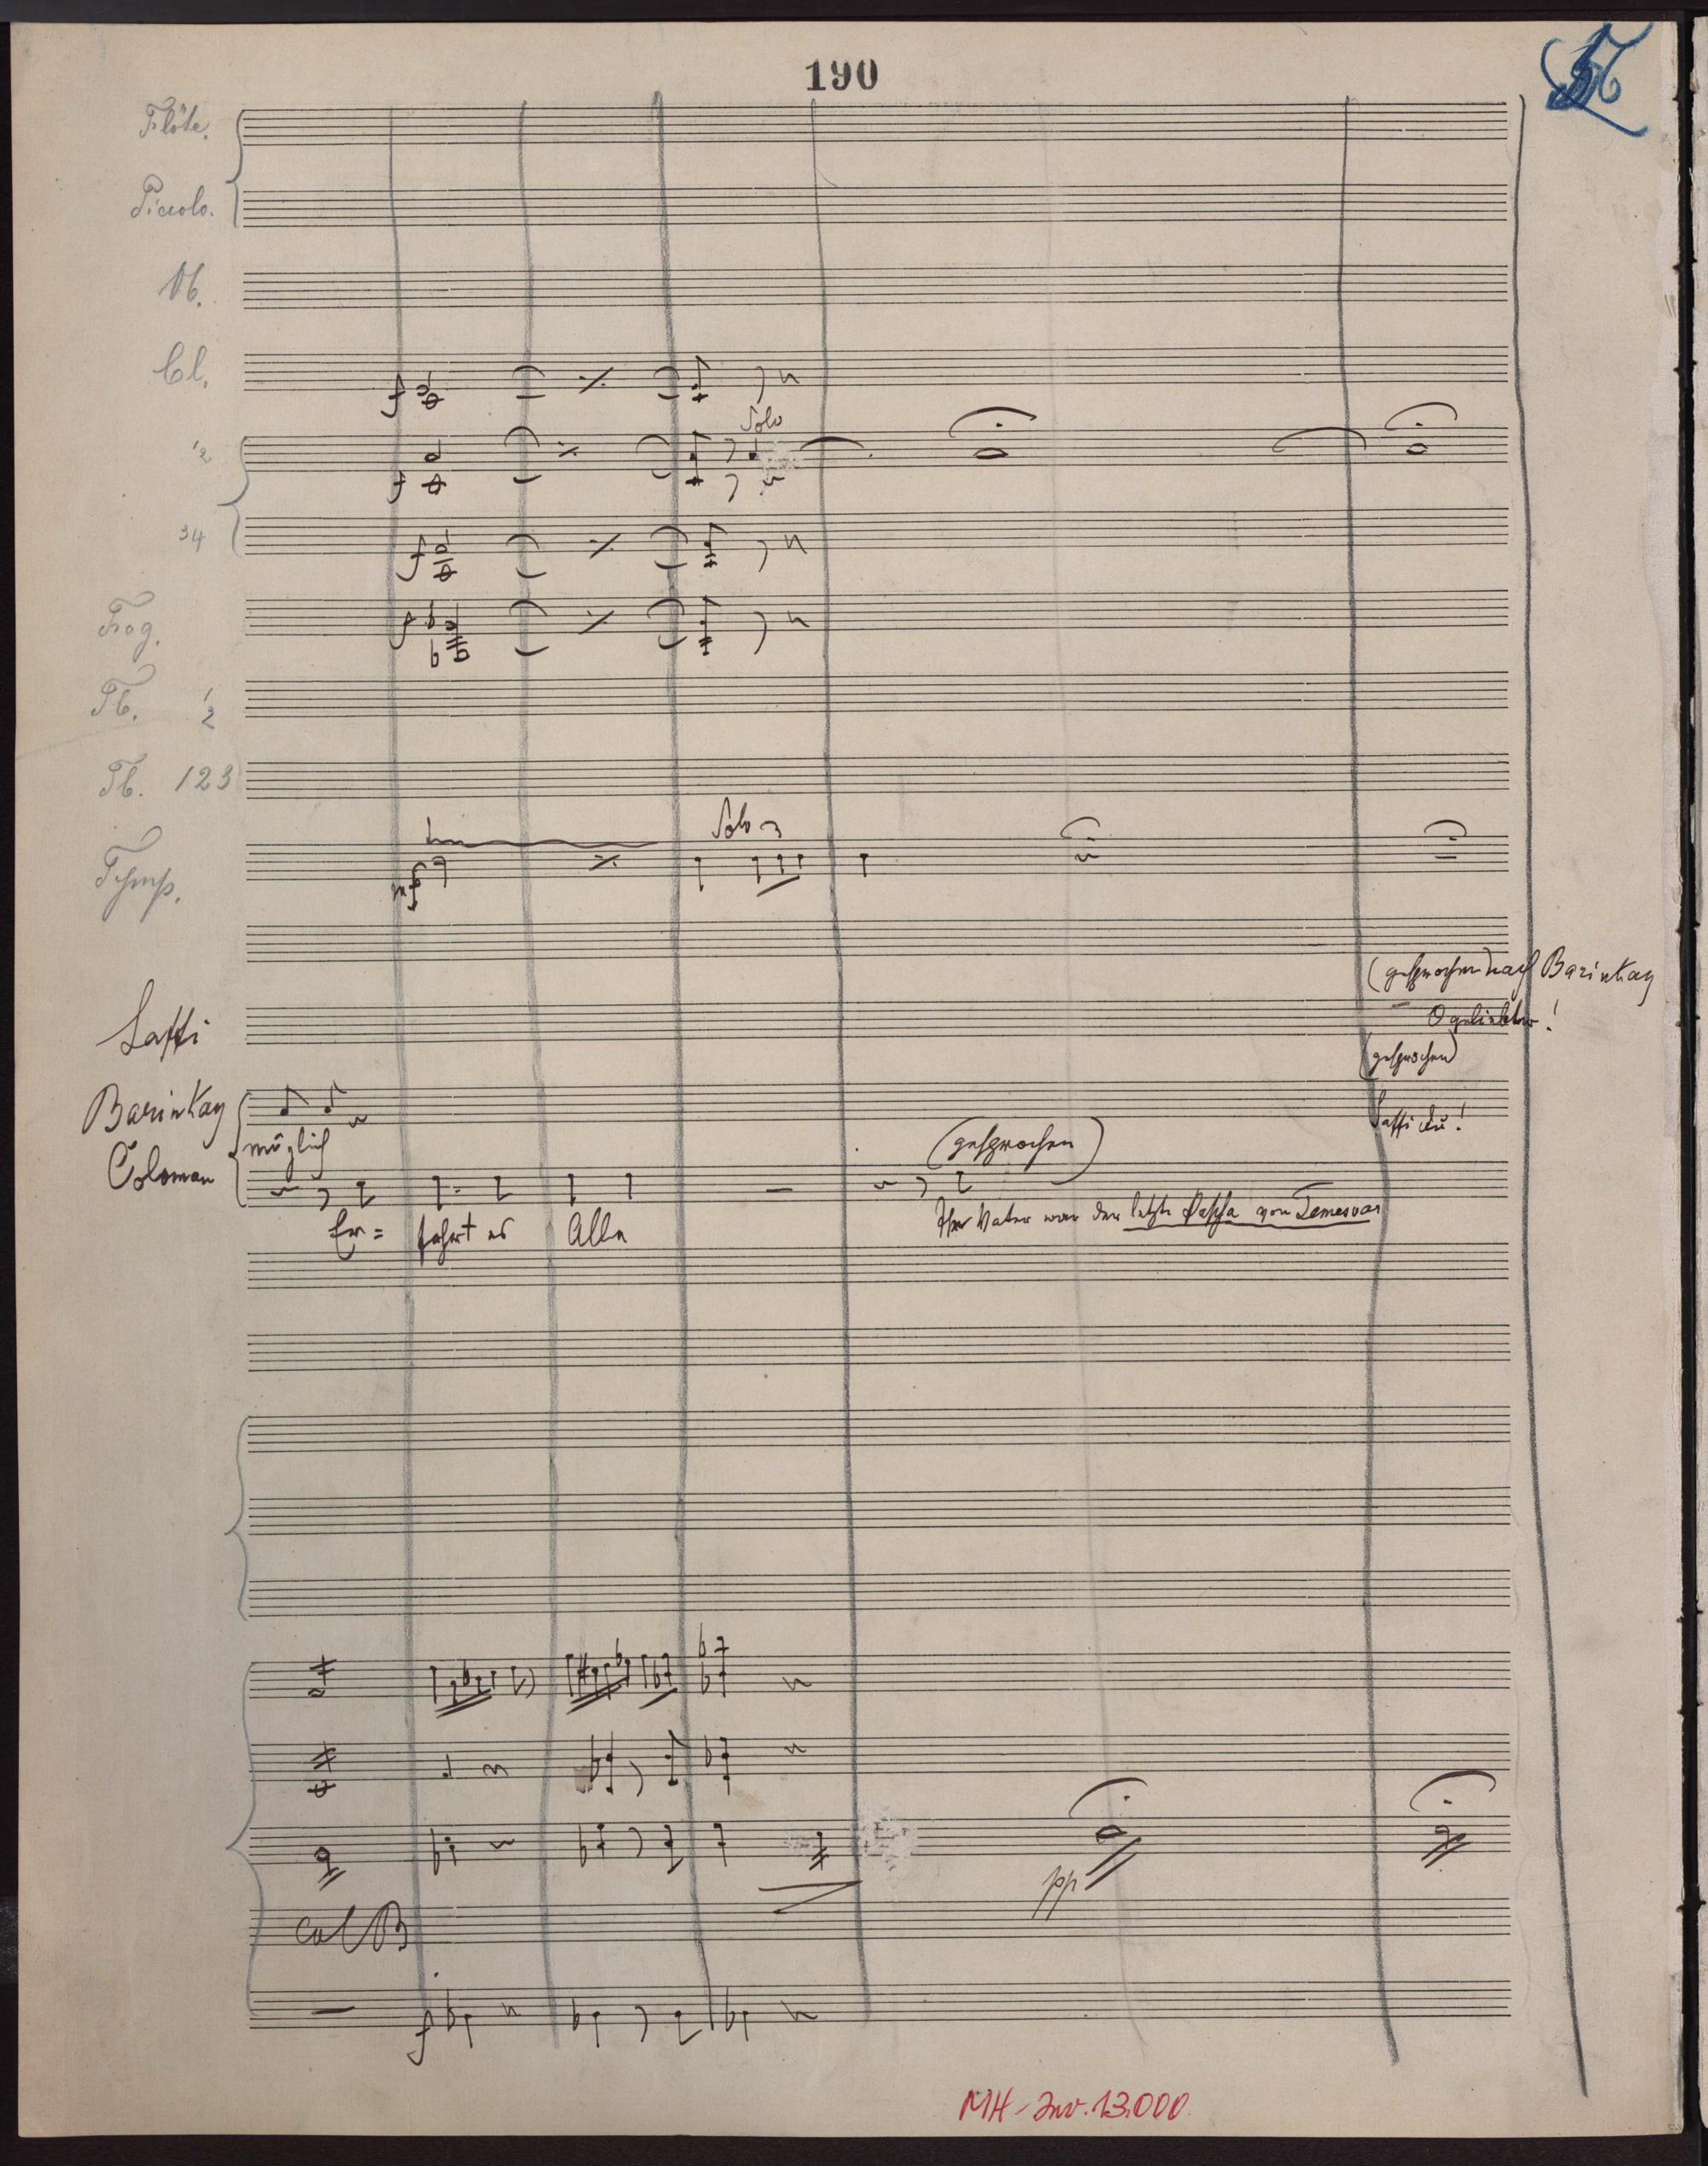 190
Flöte.
Piccolo.
Ob.
Cl.
f
Solo
12
f
34
f
Fag.
f
Tb. 1 2
Tb. 123
Solo 3
Tymp.
mf
(gesprochen) nach Barinkay
Saffi
O geliebter!
(gesprochen)
Barinkay
Saffi du!
möglich
(gesprochen)
Coloman
Er= fahrt es Alle
Ihr Vater war der letzte Pascha von Temesvar
pp
col B
f
MH-Inv. 13.000